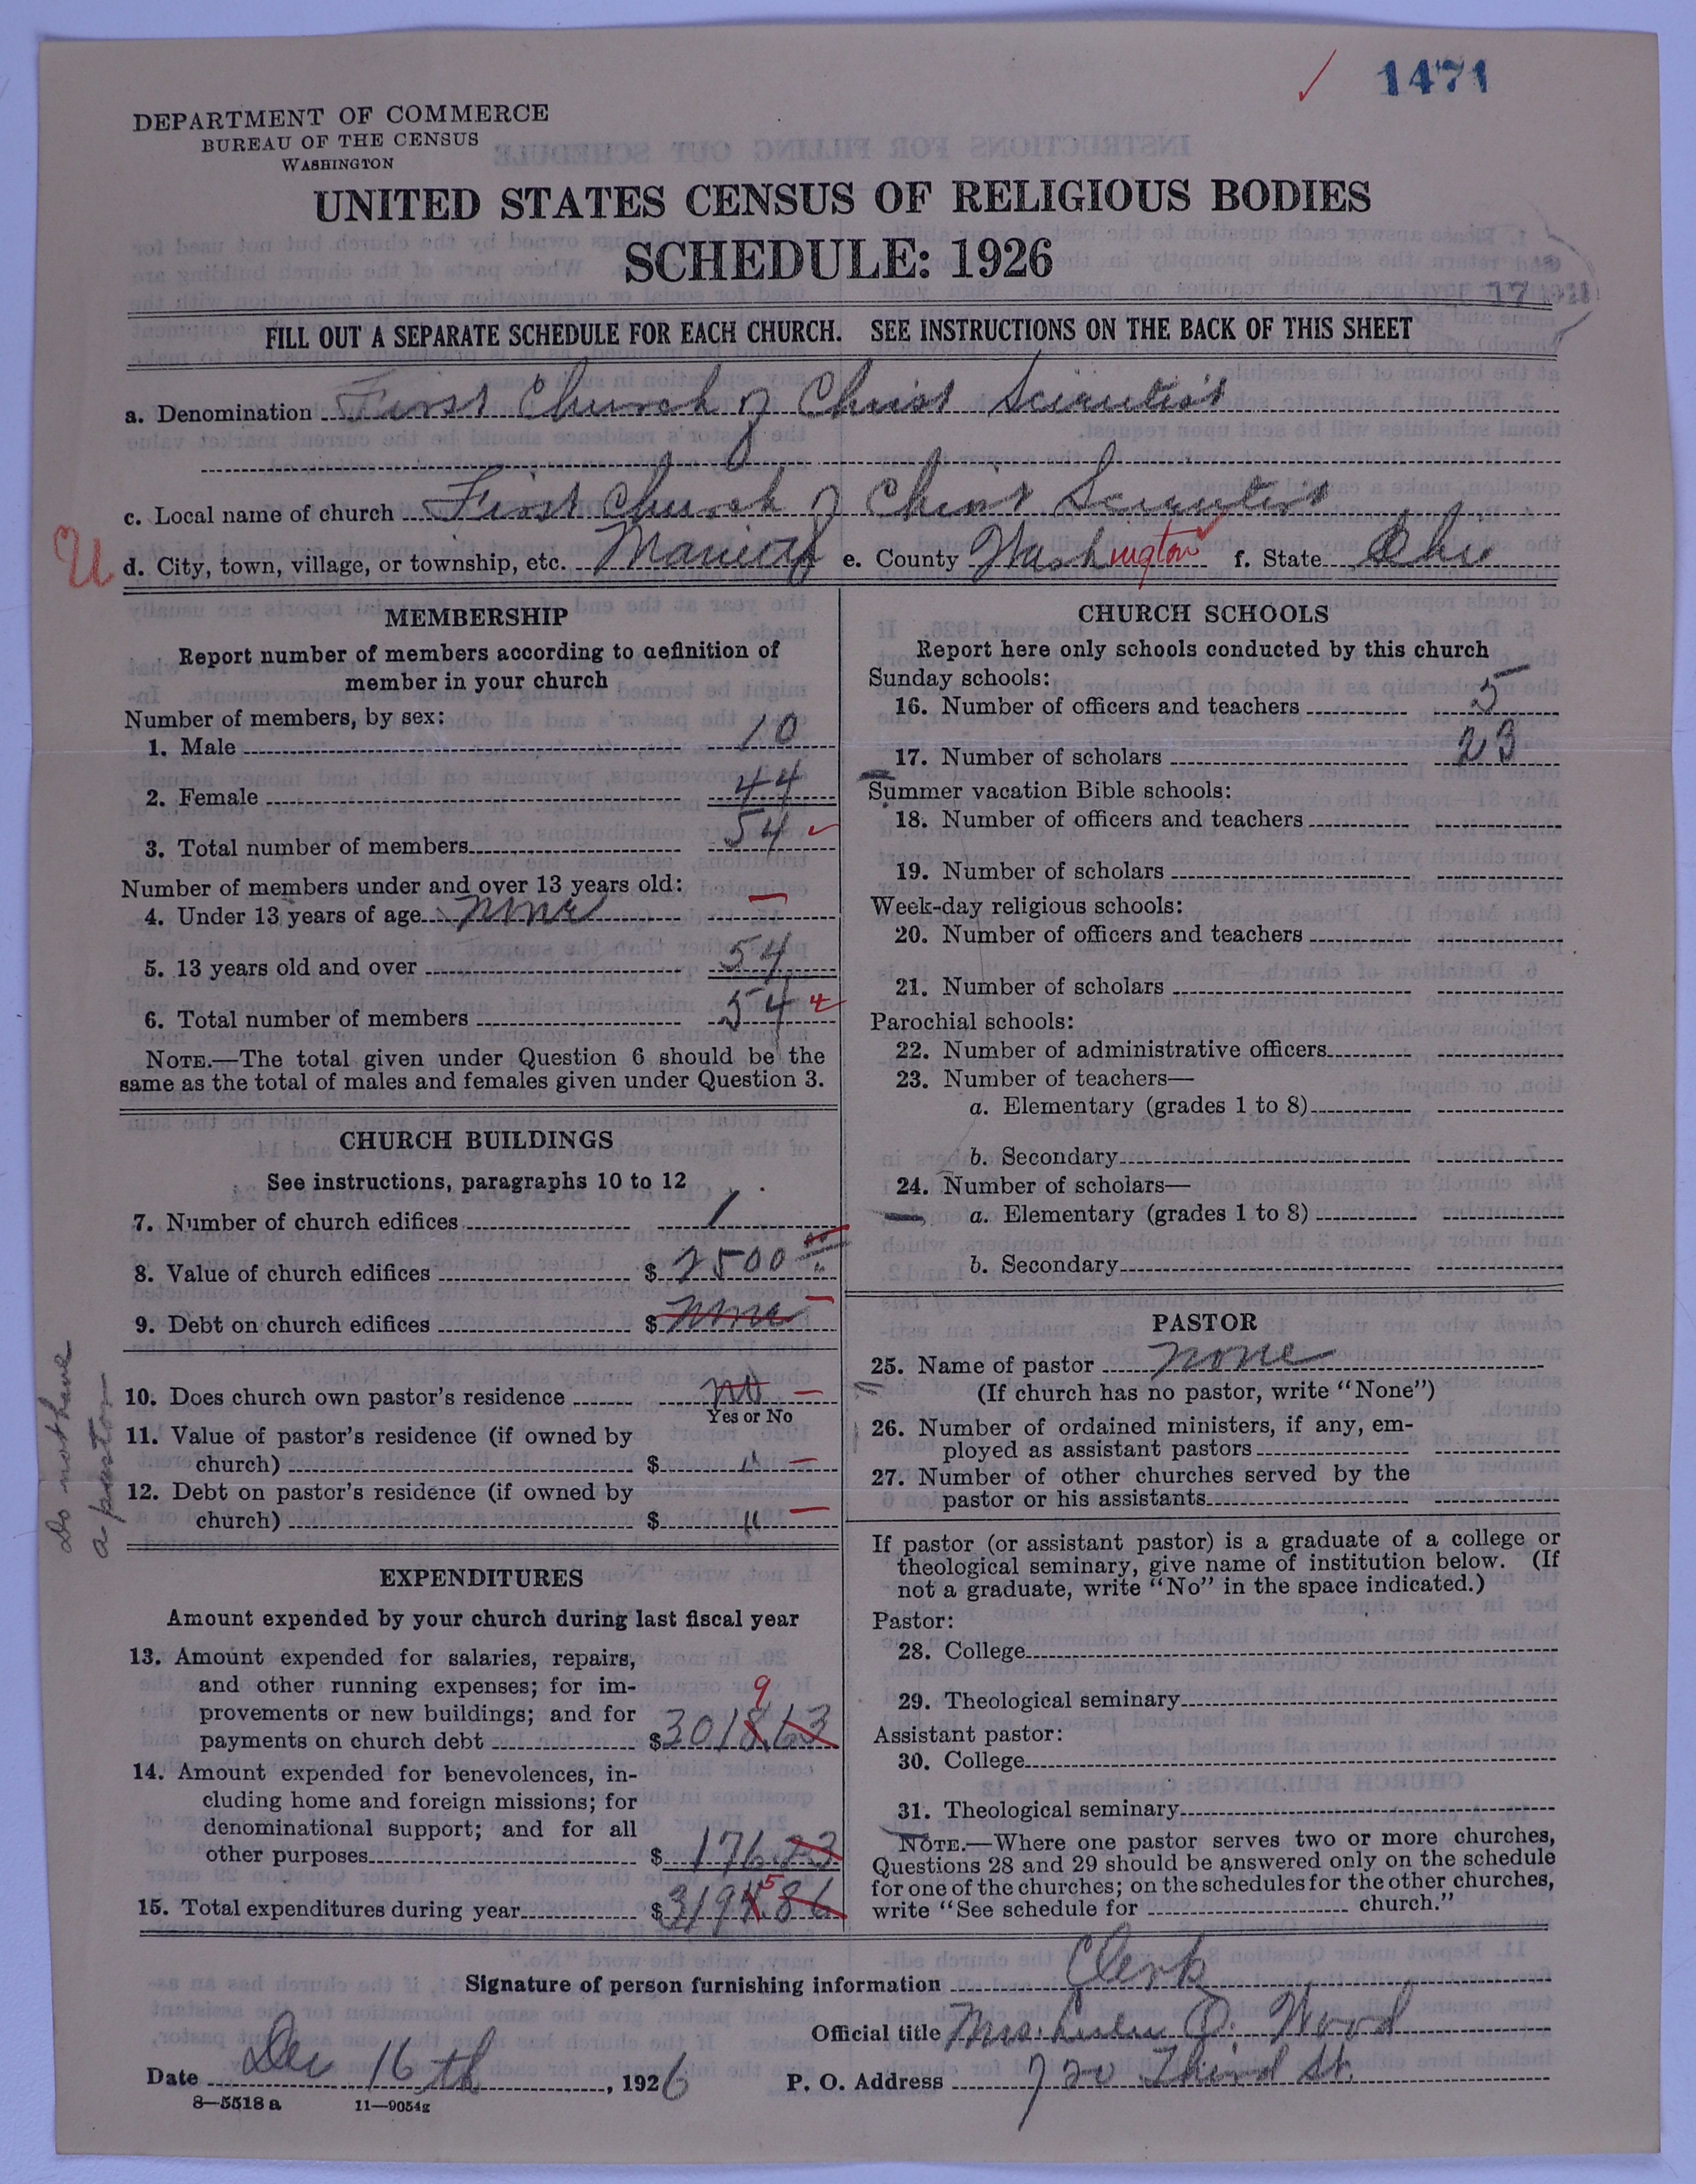 1471
DEPARTMENT OF COMMERCE
BUREAU OF THE CENSUS
WASHINGTON
UNITED STATES CENSUS OF RELIGIOUS BODIES
SCHEDULE: 1926
FILL OUT A SEPARATE SCHEDULE FOR EACH CHURCH. SEE INSTRUCTIONS ON THE BACK OF THIS SHEET
a. Denomination First Church of Christ Scientist
c. Local name of church First Church of Christ Scientist
U d. City, town, village, or township, etc. Marietta e. County Washington f. State Ohio
MEMBERSHIP
Report number of members according to definition of
member in your church
Number of members, by sex:
1. Male 10
2. Female 44
3. Total number of members 54
Number of members under and over 13 years old:
4. Under 13 years of age None —
5. 13 years old and over 54
6. Total number of members 54
NOTE.—The total given under Question 6 should be the
same as the total of males and females given under Question 3.
CHURCH BUILDINGS
See instructions, paragraphs 10 to 12
7. Number of church edifices 1
8. Value of church edifices $ 2500 00
9. Debt on church edifices $ None —
10. Does church own pastor's residence No —
Yes or No
11. Value of pastor's residence (if owned by
church) $ " —
12. Debt on pastor's residence (if owned by
church) $ " —
Do not have
a pastor
EXPENDITURES
Amount expended by your church during last fiscal year
13. Amount expended for salaries, repairs,
and other running expenses; for im-
provements or new buildings; and for
9
payments on church debt $ 3018.63
14. Amount expended for benevolences, in-
cluding home and foreign missions; for
denominational support; and for all
other purposes $ 176.23
5
15. Total expenditures during year $ 3194.86
CHURCH SCHOOLS
Report here only schools conducted by this church
Sunday schools:
16. Number of officers and teachers 5
17. Number of scholars 23
Summer vacation Bible schools:
18. Number of officers and teachers
19. Number of scholars
Week-day religious schools:
20. Number of officers and teachers
21. Number of scholars
Parochial schools:
22. Number of administrative officers
23. Number of teachers—
a. Elementary (grades 1 to 8)
b. Secondary
24. Number of scholars—
a. Elementary (grades 1 to 8)
b. Secondary
PASTOR
25. Name of pastor None
(If church has no pastor, write "None")
26. Number of ordained ministers, if any, em-
ployed as assistant pastors
27. Number of other churches served by the
pastor or his assistants
If pastor (or assistant pastor) is a graduate of a college or
theological seminary, give name of institution below. (If
not a graduate, write "No" in the space indicated.)
Pastor:
28. College
29. Theological seminary
Assistant pastor:
30. College
31. Theological seminary
NOTE.—Where one pastor serves two or more churches,
Questions 28 and 29 should be answered only on the schedule
for one of the churches; on the schedules for the other churches,
write "See schedule for church."
Signature of person furnishing information Clerk
Official title Mrs. J. Wood
Date Dec 16th, 1926 P. O. Address 720 Third St.
8—5518 a 11—9054g